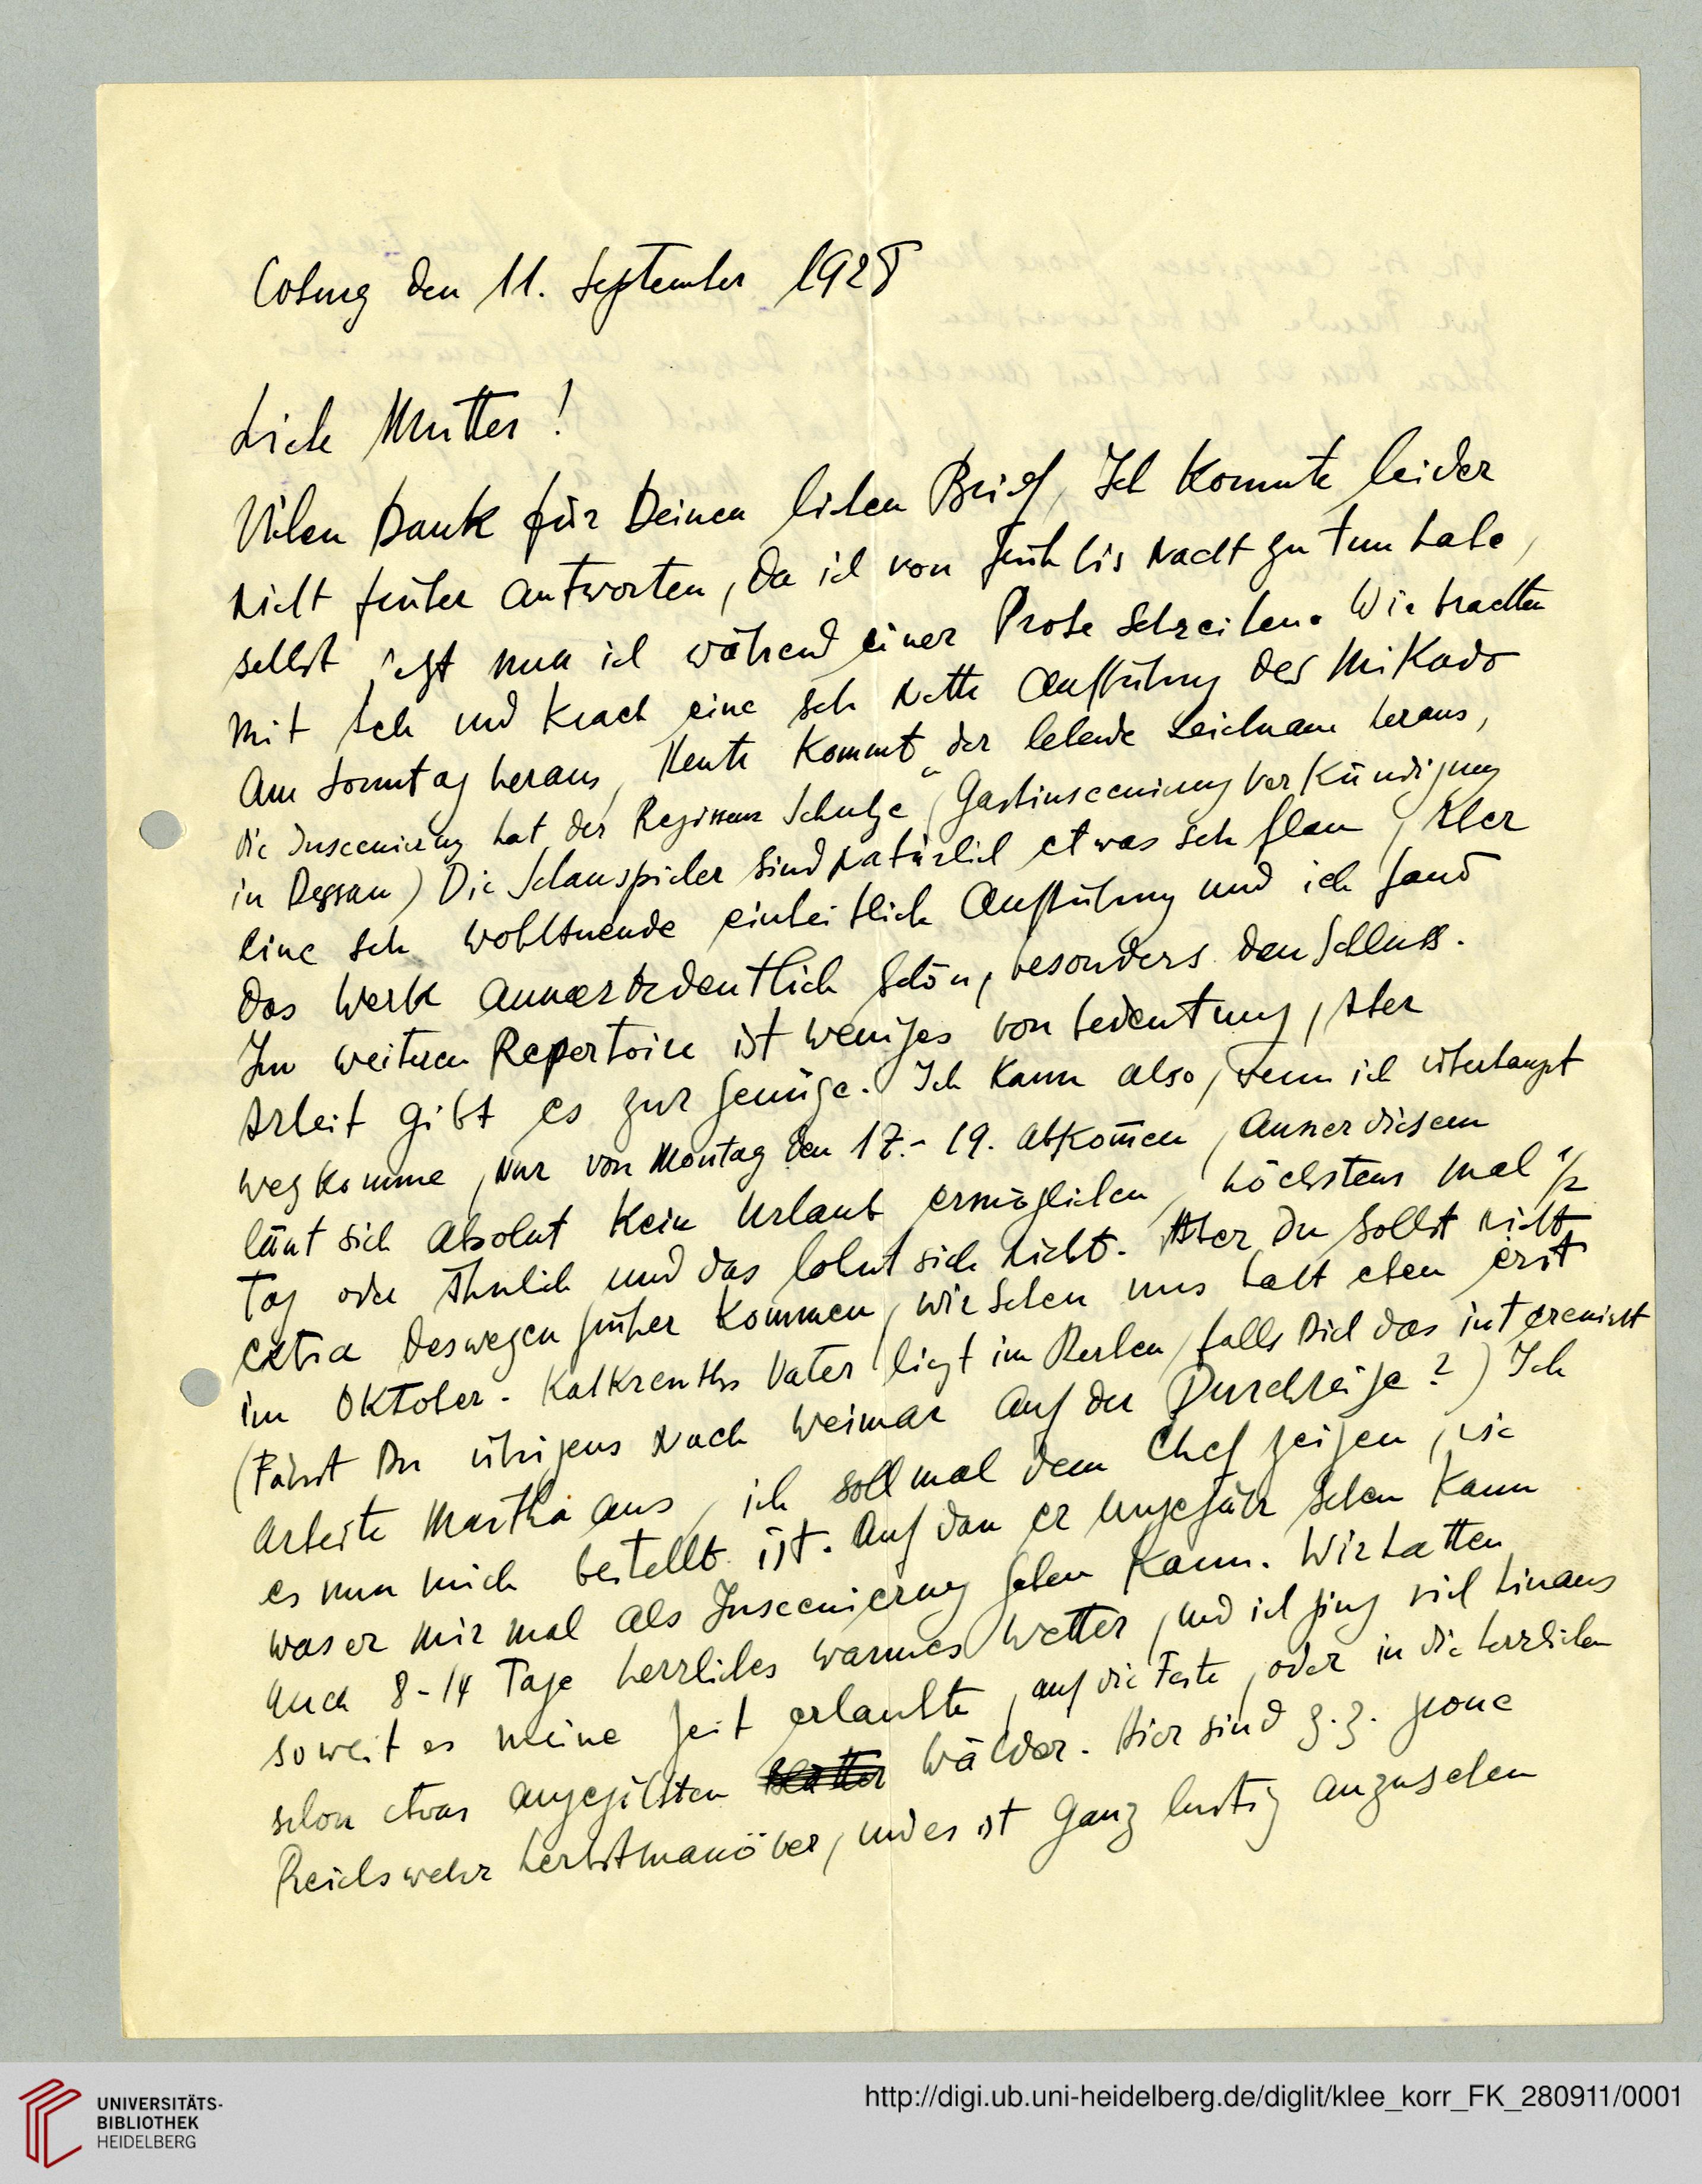 Coburg den 11. September 1928
Liebe Mutter!
Vilen Dank für Deinen lieben Brief, Ich konnte leider
nicht früher antworten, da ich von früh bis Nacht zu tun habe,
selbst jetzt muss ich während einer Probe schreiben. Wir brachten
mit Ach und Krach eine sehr nette Aufführung des Mikado
am Sonntag heraus, Heute kommt „der lebende Leichnam heraus,
die Inscenierung hat der Regisseur Schulze (Gastinscenierung Verkündigung
in Dessau) Die Schauspieler sind natürlich etwas sehr flau, Aber
eine sehr wohltuende einheitlich Aufführung und ich fand
das Werk ausserordentlich schön, besonders den Schluss.
Im weiteren Repertoire ist weniges von bedeutung, Aber
Arbeit gibt es zur genüge. Ich kann also, wenn ich überhaupt
weg komme, nur von Montag den 17.- 19. abkom̄en, ausserdiesem
lässt sich absolut kein Urlaub ermöglichen, höchstens mal 1/2
Tag oder Ähnlich und das lohnt sich nicht. Aber Du sollst nicht
extra deswegen früher kommen, wir sehen uns halt eben erst
im Oktober. Kalkreuths Vater ligt im sterben, falls Dich das interessiert
(Fährst Du übrigens nach Weimar auf der Durchreise?) Ich
arbeite Martha aus, ich soll mal dem Chef zeigen, wie
es nun mich bestellt ist. Auf dass er ungefähr sehen kann
was er mir mal als Inscenierung geben kann. Wir hatten
auch 8-14 Tage herrliches warmes Wetter, und ich ging viel hinaus
soweit es meine Zeit erlaubte, auf die Feste, oder in die herrlichen
schon etwas angegilbten Wälder. Hier sind z.z. grosse
Reichswehr herbstmanöver, und es ist ganz lustig anzusehen
UNIVERSITÄTS-
BIBLIOTHEK
HEIDELBERG
http://digi.ub.uni-heidelberg.de/diglit/klee_korr_FK_280911/0001